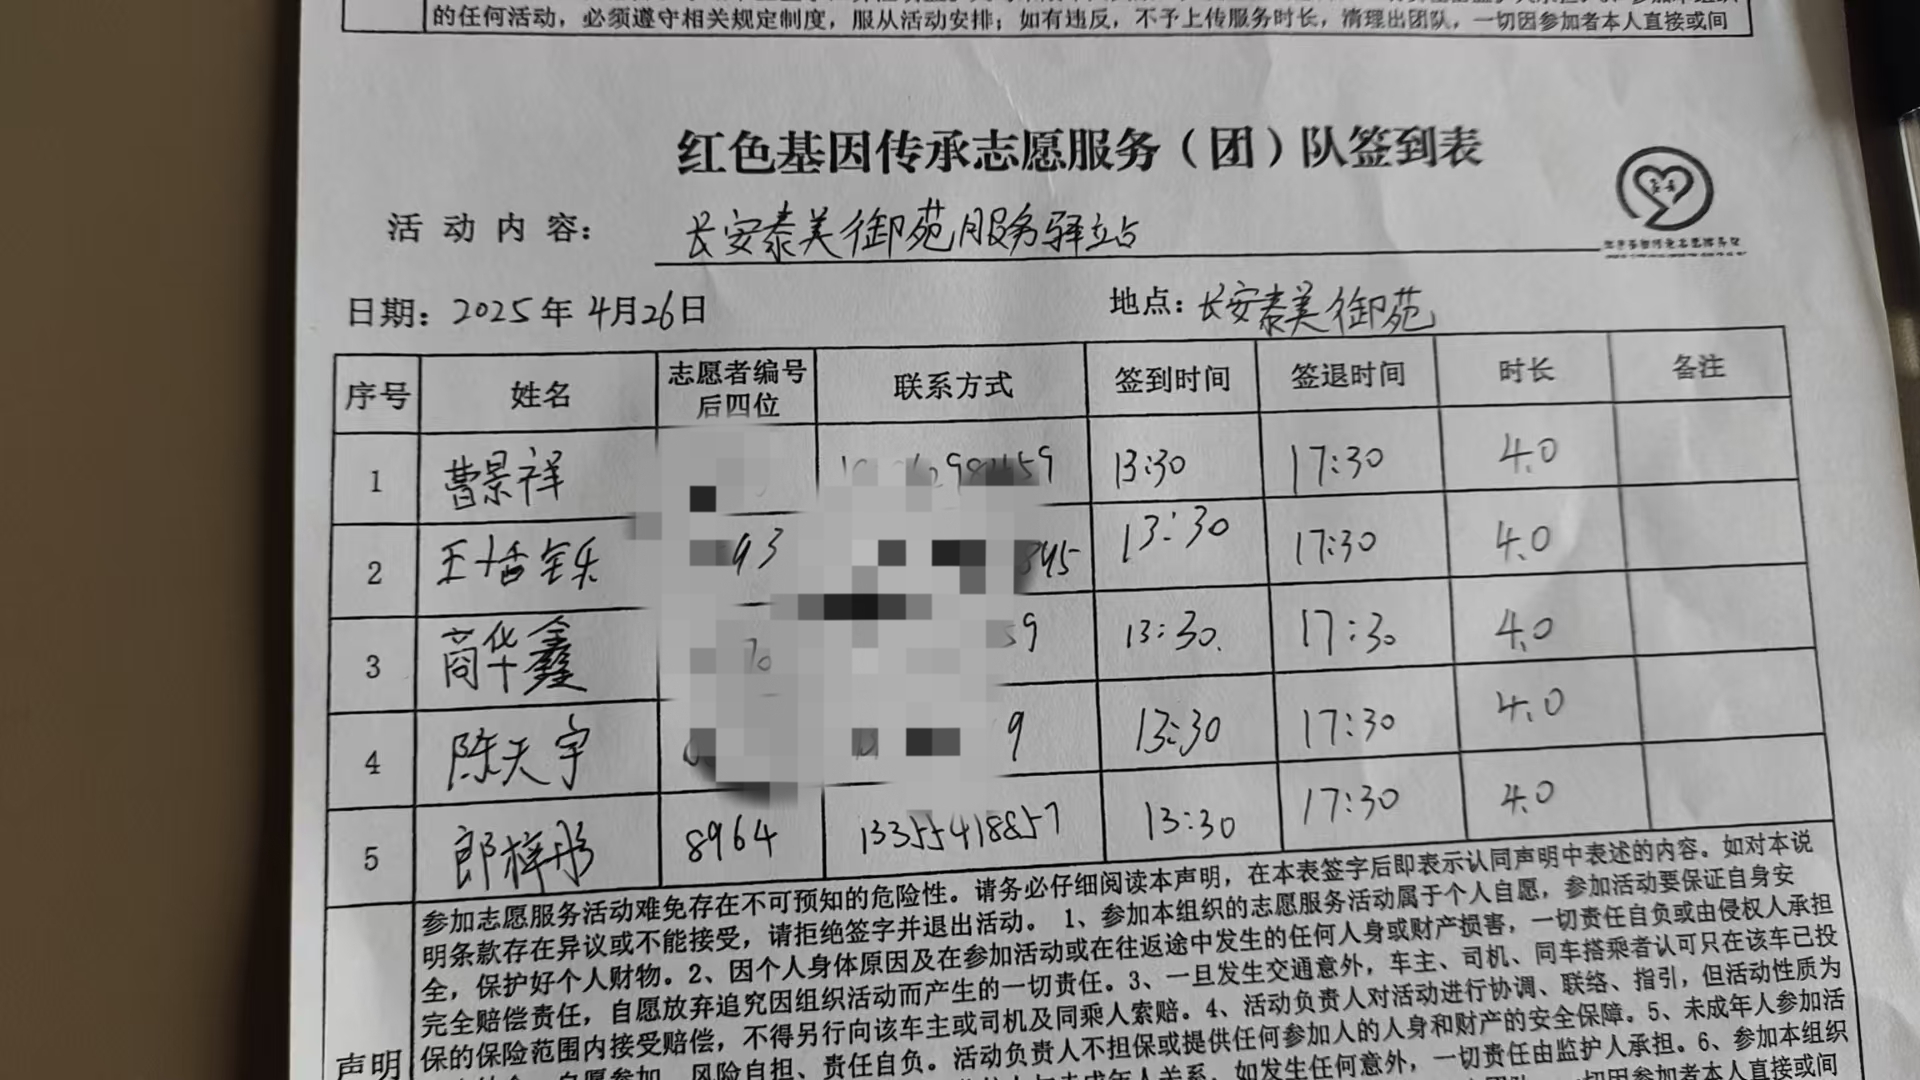 的任何活动，必须遵守相关规定制度，服从活动安排；如有违反，不予上传服务时长，清理出团队，一切因参加者本人直接或间
红色基因传承志愿服务（团）队签到表
活动内容： 长安泰美御苑服务驿站
日期：2025年4月26日 地点：长安泰美御苑
序号 姓名 志愿者编号后四位 联系方式 签到时间 签退时间 时长 备注
1 曹景祥 59 13:30 17:30 4.0
2 王 93 345 13:30 17:30 4.0
3 商华鑫 70 59 13:30. 17:30 4.0
4 陈天宇 9 13:30 17:30 4.0
5 郎梓彤 8964 13355418857 13:30 17:30 4.0
声明
参加志愿服务活动难免存在不可预知的危险性。请务必仔细阅读本声明，在本表签字后即表示认同声明中表述的内容。如对本说
明条款存在异议或不能接受，请拒绝签字并退出活动。1、参加本组织的志愿服务活动属于个人自愿，参加活动要保证自身安
全，保护好个人财物。2、因个人身体原因及在参加活动或在往返途中发生的任何人身或财产损害，一切责任自负或由侵权人承担
完全赔偿责任，自愿放弃追究因组织活动而产生的一切责任。3、一旦发生交通意外，车主、司机、同车搭乘者认可只在该车已投
保的保险范围内接受赔偿，不得另行向该车主或司机及同乘人索赔。4、活动负责人对活动进行协调、联络、指引，但活动性质为
自愿参加、风险自担、责任自负。活动负责人不担保或提供任何参加人的人身和财产的安全保障。5、未成年人参加活
如发生任何意外，一切责任由监护人承担。6、参加本组织
一切因参加者本人直接或间